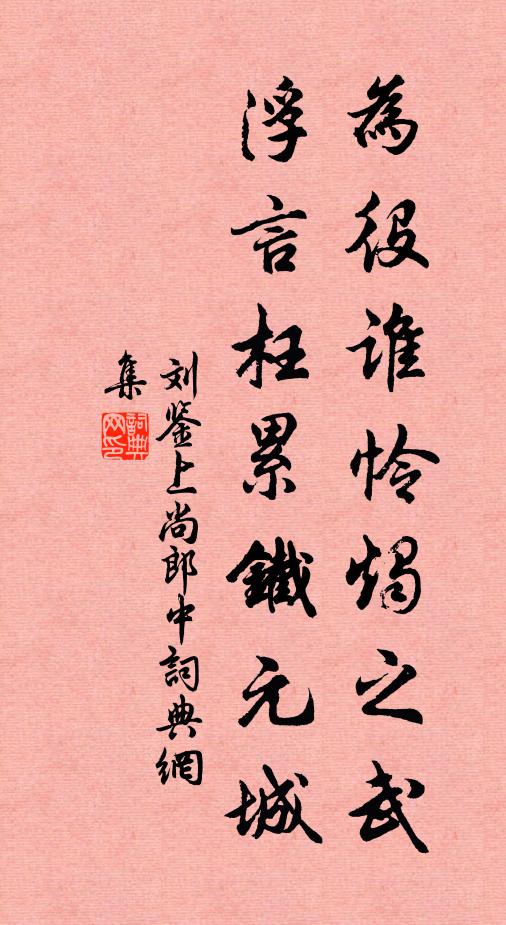 為役誰憐燭之武
浮言枉累鐵元城
刘鉴上尚郎中詞典網
集
詞典網印